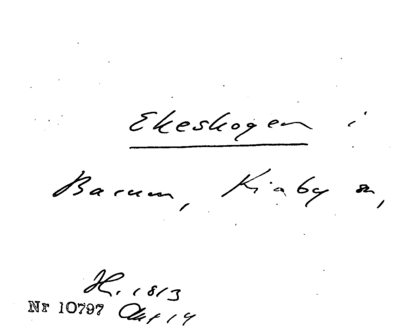 Ekeskogen i
Barum, Kiaby sn,
H. 1813
Nr 10797 Akt 14